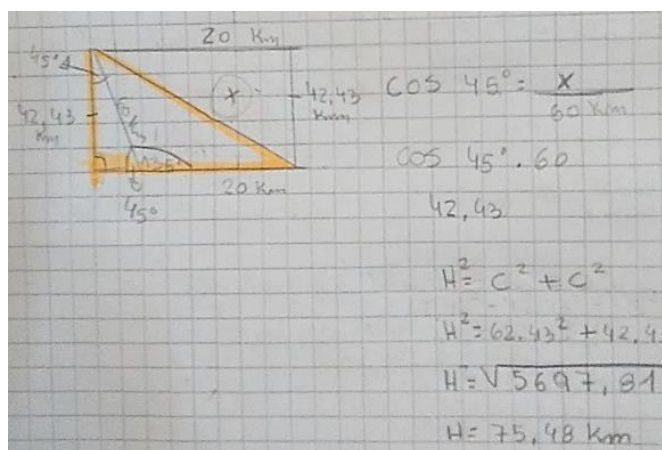 20 Km
45°
42,43
Km
42,43
Km
20 Km
45°
COS 45° = x
60 Km
COS 45° . 60
42,43
H² = C² + C²
H² = 62,43² + 42,4
H = √5697,81
H = 75,48 Km